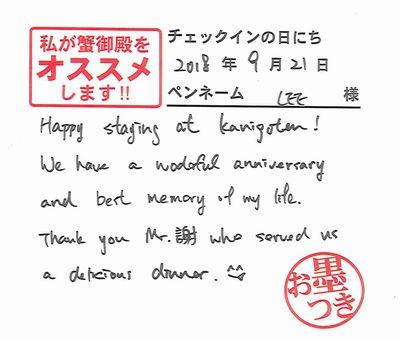 私が蟹御殿を
オススメ
します!!
チェックインの日にち
2018年9月21日
ペンネーム LEE 様
Happy staying at kanigoten!
We have a wodorful anniversary
and best memory of my life.
Thank you Mr.謝 who served us
a delicious dinner.
お墨つき